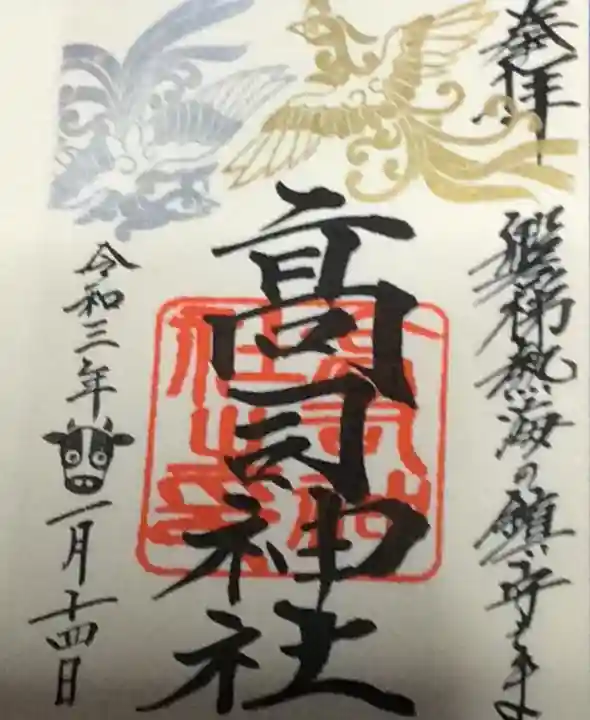 奉拝
磐梯熱海の鎮守さま
高司神社
令和三年
一月十四日